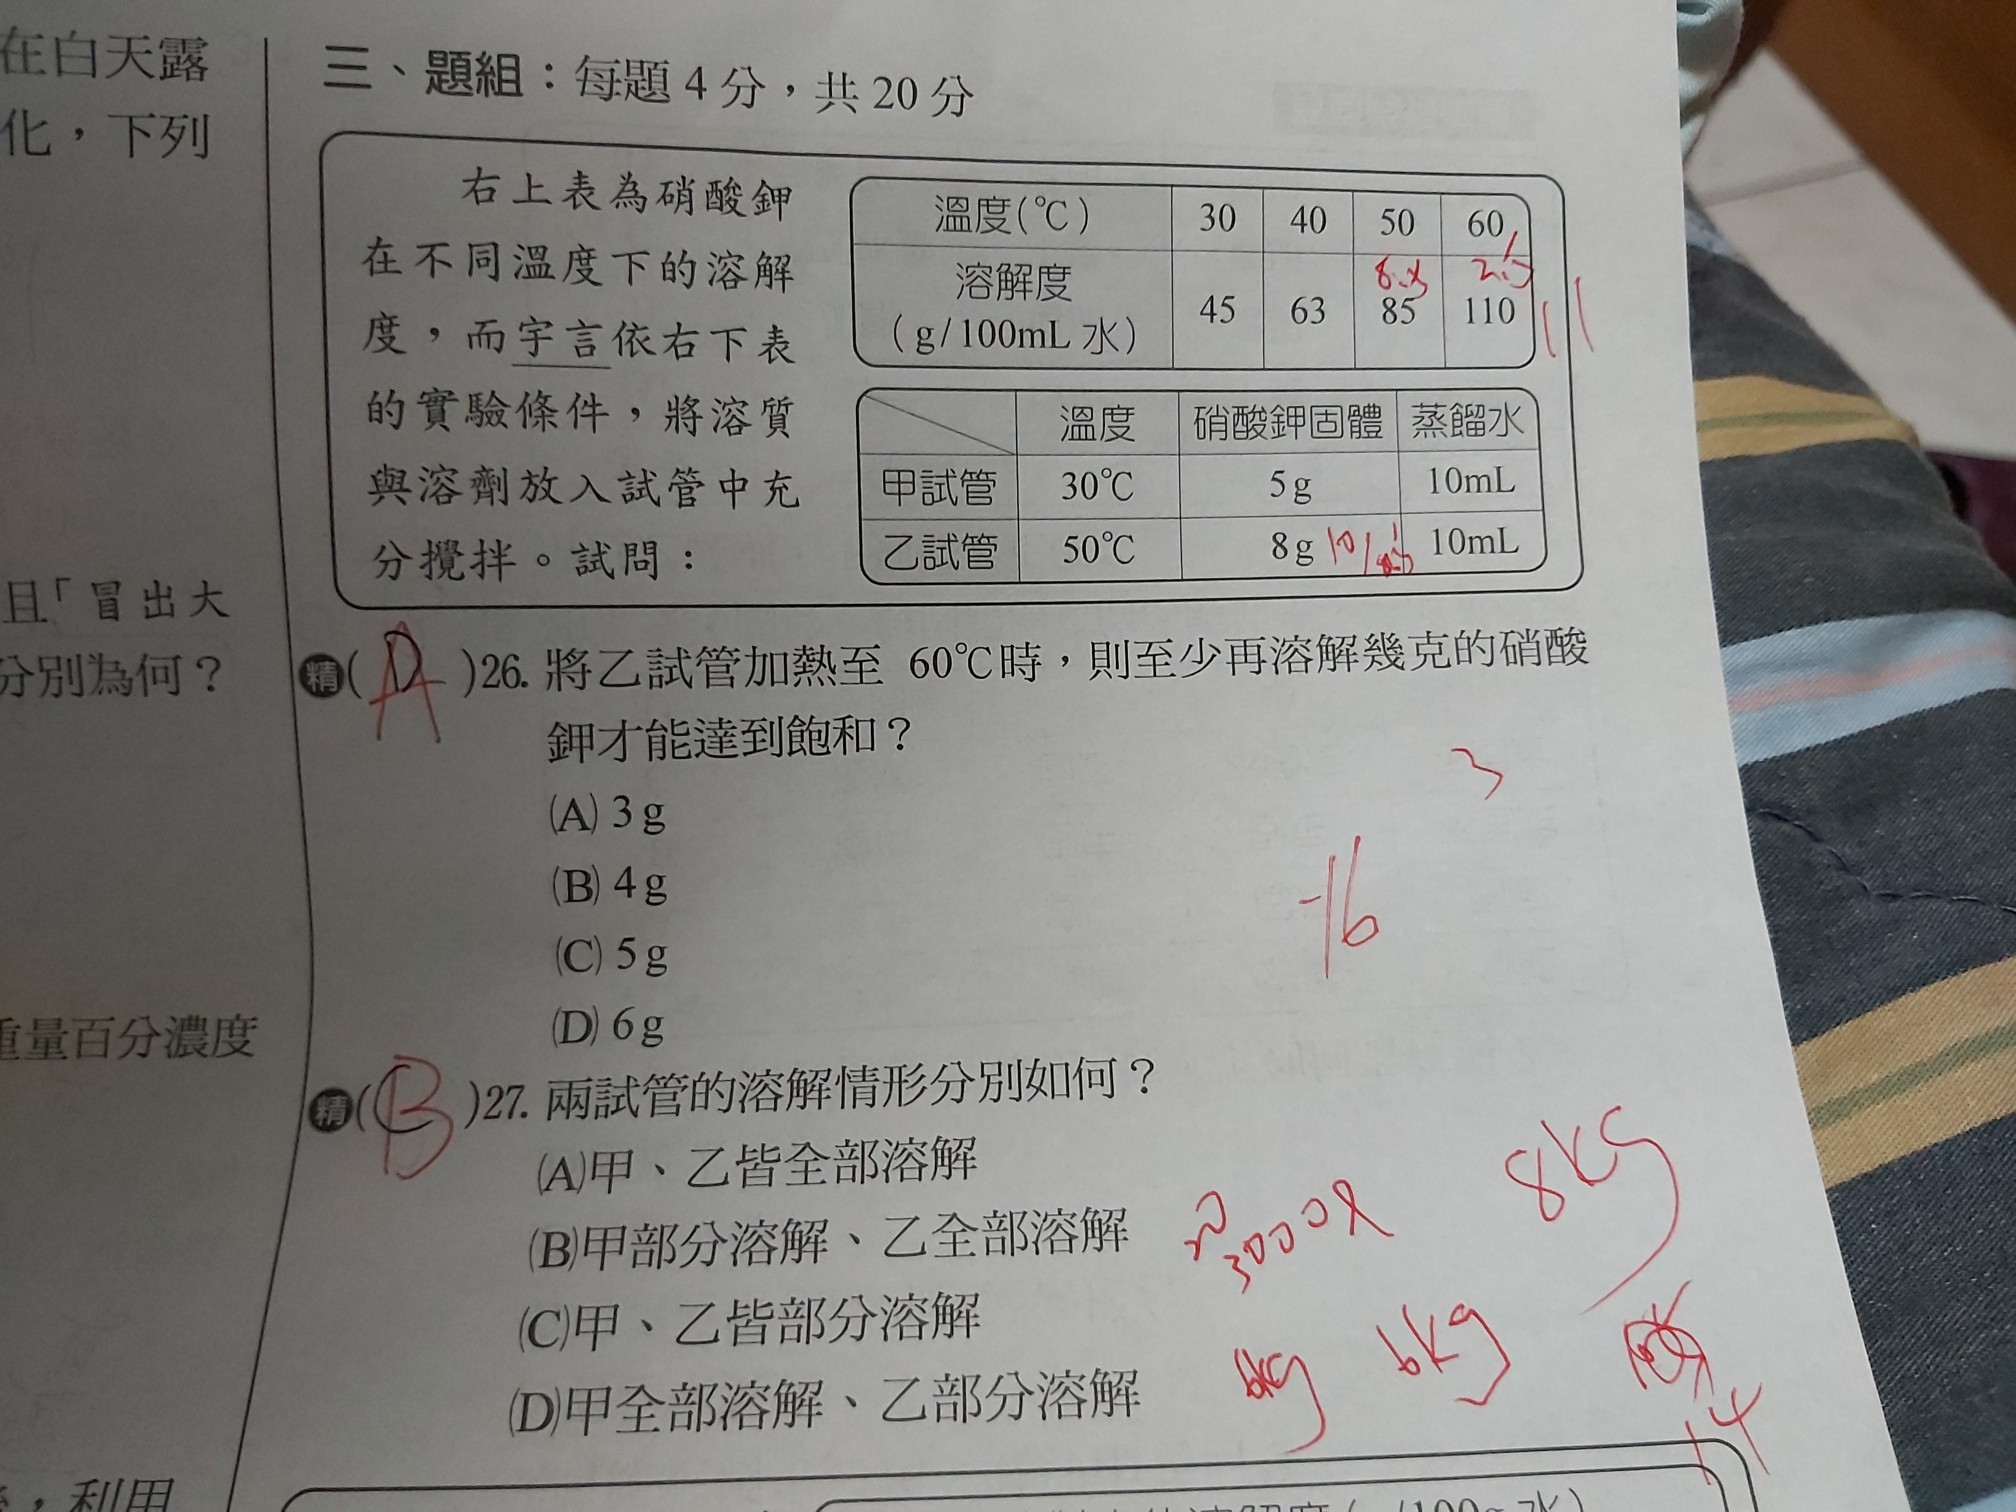 在白天露
化，下列
且「冒出大
分別為何？
重量百分濃度
，利用
三、題組：每題4分，共20分
右上表為硝酸鉀
在不同溫度下的溶解
度，而宇言依右下表
的實驗條件，將溶質
與溶劑放入試管中充
分攪拌。試問：
溫度(℃) 30 40 50 60
溶解度
(g/100mL 水) 45 63 85 110
8.5
11
溫度 硝酸鉀固體 蒸餾水
甲試管 30℃ 5g 10mL
乙試管 50℃ 8g 10mL
精( D A )26. 將乙試管加熱至 60℃時，則至少再溶解幾克的硝酸
鉀才能達到飽和？
(A) 3g
(B) 4g
(C) 5g
(D) 6g
3
-16
精( C B )27. 兩試管的溶解情形分別如何？
(A)甲、乙皆全部溶解
(B)甲部分溶解、乙全部溶解
(C)甲、乙皆部分溶解
(D)甲全部溶解、乙部分溶解
8kg
6kg
6kg
14